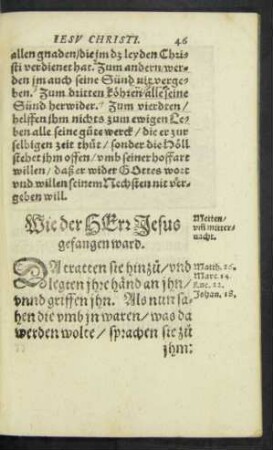 IESV CHRISTI. 46
allen gnaden/die jm dz leyden Chri-
sti verdienet hat. Zum andern/wer-
den jm auch seine Sünd nit verge-
ben. Zum dritten köhren alle seine
Sünd herwider. Zum vierdten/
helffen jhm nichts zum ewigen Le-
ben alle seine gůte werck/die er zur
selbigen zeit thůt/sonder die Höll
stehet jhm offen/vmb seiner hoffart
willen/daß er wider GOttes wort
vnd willen seinem Nechsten nit ver-
geben will.
Wie der HErr Jesus
gefangen ward.
Metten/
vmb mitter-
nacht.
DA tratten sie hinzů/vnd
legten jhre händ an jhn/
vnnd griffen jhn. Als nun sa-
hen die vmb jn waren/was da
werden wolte/sprachen sie zů
jhm:
Matth. 26.
Marc. 14.
Luc. 22.
Johan. 18.